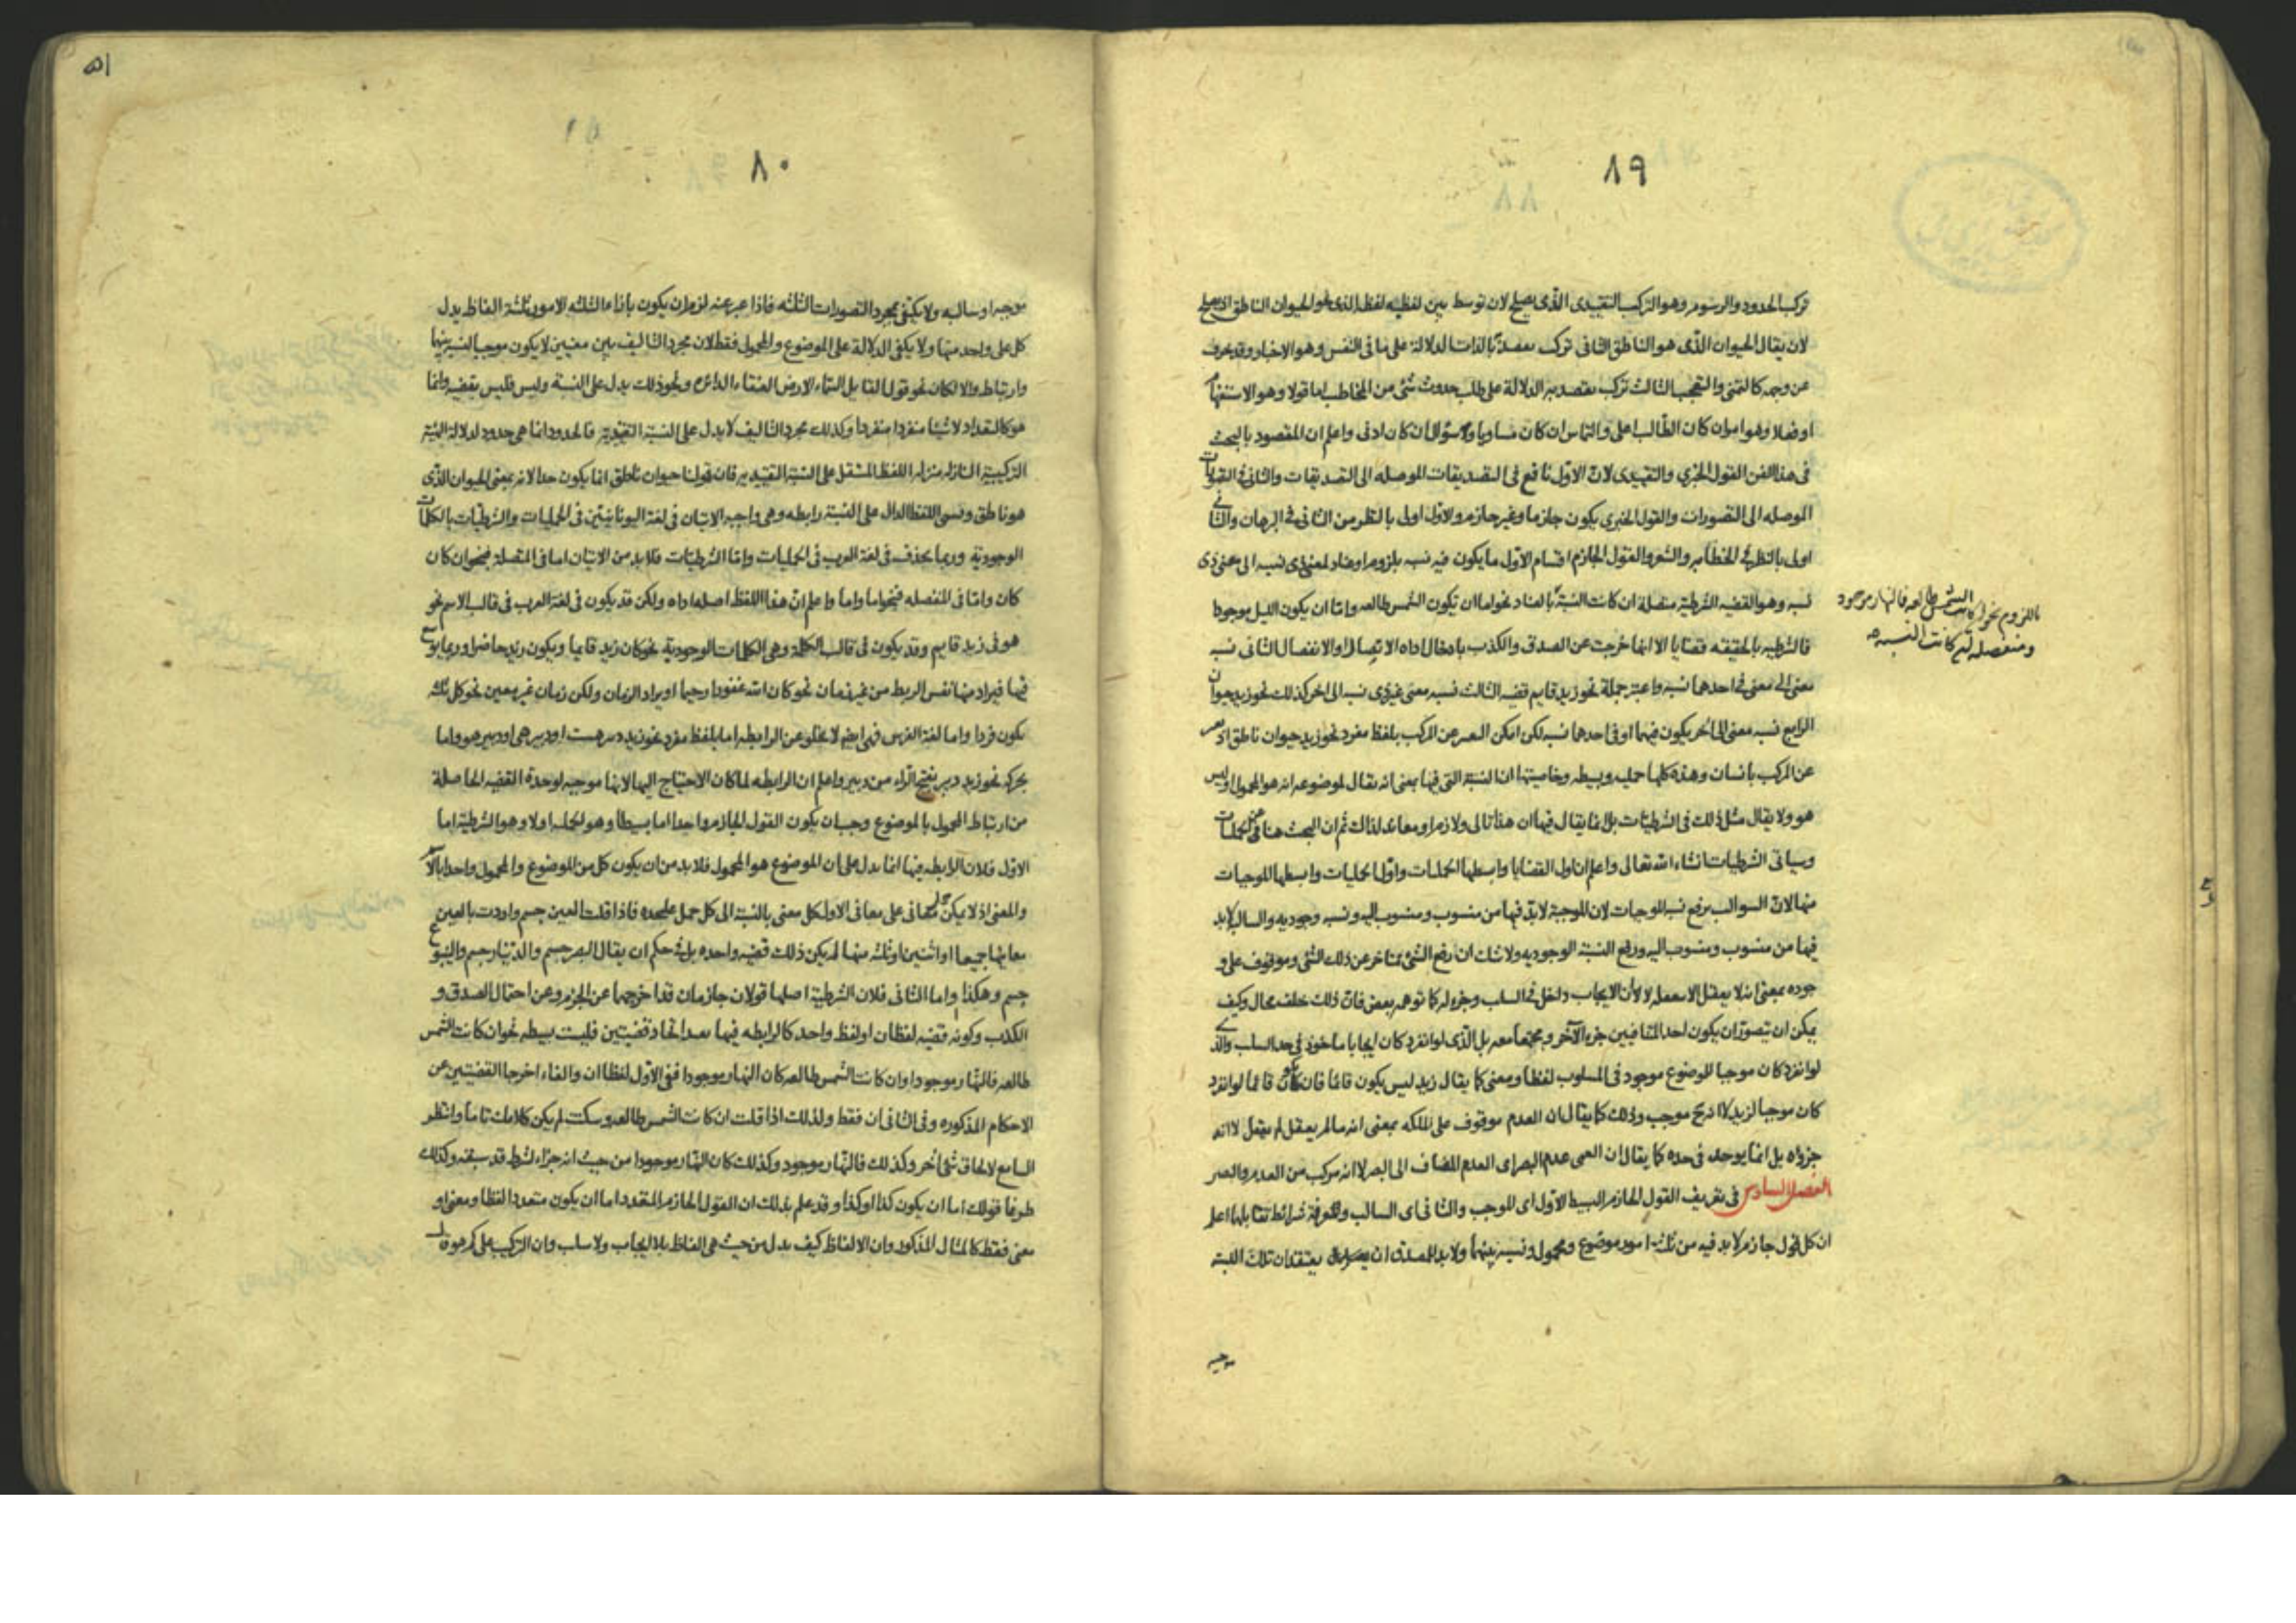 ٨٩
تركب الحدود والرسوم وهو التركيب التقييدى الذى يصلح لان توسط بين لفظيه لفظ الذى هو الحيوان الناطق اذ يصلح
لان يقال الحيوان الذى هو الناطق الثانى تركب يقصد به بالذات الدلالة على ما فى النفس وهو الاخبار وقد يحرف
عن وجهه كالتمنى والتعجب الثالث تركب يقصد به الدلالة على طلب حدوث شئ من المخاطب اما قولا وهو الاستفهام
او فعلا وهو امر ان كان الطالب اعلى والتماس ان كان مساويا وسؤال ان كان ادنى واعلم ان المقصود بالبحث
فى هذا الفن القول الخبرى والتقييدى لان الاول نافع فى التصديقات الموصله الى التصديقات والثانى فى
الموصله الى التصورات والقول الخبرى يكون جازما وغير جازم والاول اولى بالنظر من الثانى فى البرهان والثانى
اولى بالنظر فى الخطابه والشعر والقول الجازم اقسام الاول ما يكون فيه نسبه بلزوم او عناد لمعنى ذى نسبه الى معنى ذى
نسبه وهو القضيه الشرطية متصلة ان كانت النسبة بالعناد نحو اما ان تكون الشمس طالعه واما ان يكون الليل موجودا
باللزوم نحو ان كانت الشمس طالعه فالنهار موجود
ومنفصله ان كانت النسبه
فالشرطيه بالحقيقه قضايا الا انها خرجت عن الصدق والكذب بادخال اداه الاتصال او الانفصال الثانى نسبه
معنى الى معنى فى احدهما نسبه واعتبر جملة نحو زيد قايم قضيه الثالث نسبه معنى غير ذى نسبه الى اخر كذلك نحو زيد حيوان
الرابع نسبه معنى الى آخر يكون فيهما او فى احدهما نسبه لكن امكن التعبير عن المركب بلفظ مفرد نحو زيد حيوان ناطق اذ يعبر
عن المركب بانسان وهذه كلها حمليه وبسيطه وخاصيتها ان النسبة التى فيها بمعنى انه يقال لموضوعه انه هو المحمول او ليس
هو ولا يقال مثل ذلك فى الشرطيات بل انما يقال فيها ان هذا تالى ولازم او معاند لذلك ثم ان البحث هنا فى الحمليات
وسياتى الشرطيات انشاء الله تعالى واعلم ان اول القضايا وابسطها الحمليات واول الحمليات وابسطها الموجبات
منها لان السوالب برفع نسبه الموجبات لان الموجبة لابد فيها من منسوب ومنسوب اليه ونسبه وجوديه والسالبه لابد
فيها من منسوب ومنسوب اليه ورفع النسبة الوجوديه ولا شك ان رفع الشئ متاخر عن ذلك الشئ وموقوف على و
جوده بمعنى انه لا يعقل الا بتعقله لا لان الايجاب داخل فى السلب وجزء له كما توهمه بعض فان ذلك خلف محال وكيف
يمكن ان تصور ان يكون احد المتنافيين جزء الآخر ومجتمعا معه بل الذى لو انفرد كان ايجابا ماخوذ فى حد السلب والذى
لو انفرد كان موجبا للموضوع موجود فى المسلوب لفظا ومعنى كما يقال زيد ليس يكون قائما فان كان قائما لو انفرد
كان موجبا لزيد لا انه ح موجب وذلك كما يقال ان العدم موقوف على الملكه بمعنى انه ما لم يعقل لم يعقل لا انه
جزؤه بل انما يوجد فى حده كما يقال ان العمى عدم البصر اى العدم المضاف الى البصر لا انه مركب من العدم والبصر
الفصل السادس فى تعريف القول الجازم البسيط الاول اى الموجب والثانى اى السالب والمعرفة شرائط تقابلهما اعلم
ان كل قول جازم لابد فيه من ثلثة امور موضوع ومحمول ونسبه بينهما ولابد للمصدق ان يعتقد ان تلك النسبة
موجبه
٥١
٨٠
موجبه او سالبه ولا يكفى مجرد التصورات الثلثه فاذا عبر عنه لزم ان يكون بازاء الثلثه الامور ثلثة الفاظ يدل
كل على واحد منها ولا يكفى الدلالة على الموضوع والمحمول فقط لان مجرد التاليف بين معنيين لا يكون موجبا لنسبه بينهما
وارتباط والا لكان نحو قول القايل السماء الارض العنقاء الدائره ونحو ذلك يدل على النسبة وليس فليس بقضيه وانما
هو كالتعداد لاشياء منفردا منفردا وكذلك مجرد التاليف لا يدل على النسبة التقييدية فالحدود انما هى حدود لدلالة الهيئة
التركيبية النازله منزله اللفظ المشتمل على النسبة التقييديه فان قولنا حيوان ناطق انما يكون حدا لانه بمعنى الحيوان الذى
هو ناطق وتسمى اللفظ الدال على النسبة رابطه وهى واجبه الاتيان فى لغة اليونانيين فى الحمليات والشرطيات بالكلمات
الوجودية وربما يحذف فى لغة العرب فى الحمليات واما الشرطيات فلابد من الاتيان اما فى المتصلة فبنحو ان كان
كان واما فى المنفصله فبنحو اما واما واعلم ان هذا اللفظ اصلها اداه ولكن قد يكون فى لغة العرب فى قالب الاسم نحو
هو فى زيد هو قايم وقد يكون فى قالب الكلمة وهى الكلمات الوجودية نحو كان زيد قايما ويكون زيد حاضرا وربما
فيها فيراد منها نفس الربط من غير زمان نحو كان الله غفورا رحيما او يراد الزمان ولكن زمان غير معين نحو كل ثلثه
يكون فردا واما لغة الفرس فهى ايضا لا تخلو عن الرابطه اما بلفظ مفرد نحو زيد دبير هست او دبير هى او دبير هو واما
بحركه نحو زيد دبير بفتح الراء من دبير واعلم ان الرابطه لما كان الاحتياج اليها لانها موجبه لوحدة القضيه الحاصلة
من ارتباط المحمول بالموضوع وجب ان يكون القول الجازم واحدا اما بسيطا وهو الحمليه او لا وهو الشرطية اما
الاول فلان الرابطه فيها انما يدل على ان الموضوع هو المحمول فلابد من ان يكون كل من الموضوع والمحمول واحدا بالاسم
والمعنى اذ لا يكن حمل معانى على معانى الاول كل معنى بالنسبة الى كل حمل عليحده فاذا قلت العين جسم واردت بالعين
معانيها جميعا او اثنين او ثلثه منها لم يكن ذلك قضيه واحده بل فى حكم ان يقال البصر جسم والدينار جسم والينبوع
جسم وهكذا واما الثانى فلان الشرطية اصلها قولان جازمان قد اخرجهما عن الجزم وعن احتمال الصدق و
الكذب وكونه قضيه لفظان او لفظ واحد كالرابطه فيها بعد اتحاد قضيتين فليست بسيطه نحو ان كانت الشمس
طالعه فالنهار موجود او ان كانت الشمس طالعه كان النهار موجودا ففى الاول لفظا ان والفاء اخرجا القضيتين عن
الاحكام المذكوره وفى الثانى ان فقط ولذلك اذا قلت ان كانت الشمس طالعه وسكت لم يكن كلامك تاما وانتظر
السامع لالحاق شئ آخر وكذلك فالنهار موجود وكذلك كان النهار موجودا من حيث انه جزاء لشرط قد سبقه وكذلك
طرفا قولك اما ان يكون كذا او كذا وقد علم بذلك ان القول الجازم المتعدد اما ان يكون متعددا لفظا ومعنى او
معنى فقط كالمثال المذكور وان الالفاظ كيف يدل من حيث هى الفاظ بلا ايجاب ولا سلب وان التركيب على كم هو